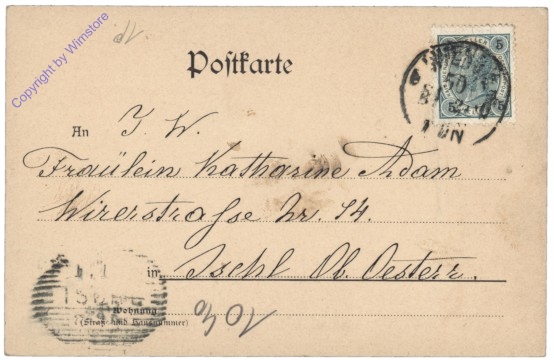 Copyright by Wimstore
Postkarte
5 5
WIEN
An J. W.
Fräulein Katharine Adam
Wirerstraße Nr. 14.
in Ischl Ob. Oesterr.
Wohnung
(Straße und Hausnummer)